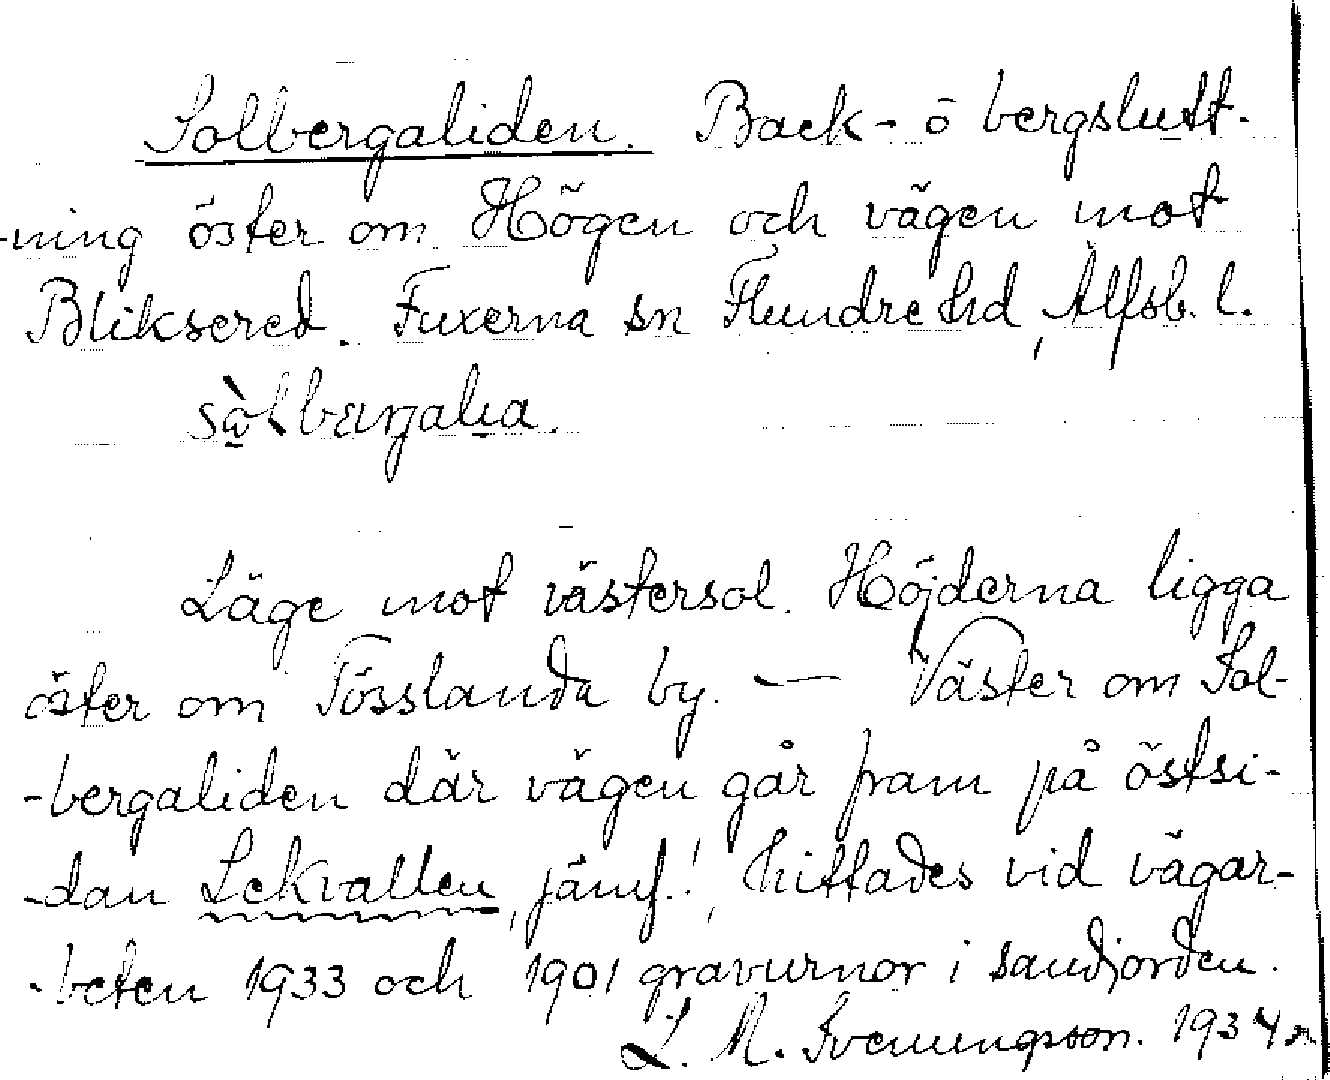 Solbergaliden. Back- o bergslutt-
-ning öster om Högen och vägen mot
Bliksered. Fuxerna sn Flundre hd, Älfsb. l.
Läge mot västersol. Höjderna ligga
öster om Tösslanda by. — Väster om Sol-
-bergaliden där vägen går fram på östsi-
-dan Lekvallen, jämf.!, hittades vid vägar-
-beten 1933 och 1901 gravurnor i sandjorden.
L. M. Svenungsson. 1934